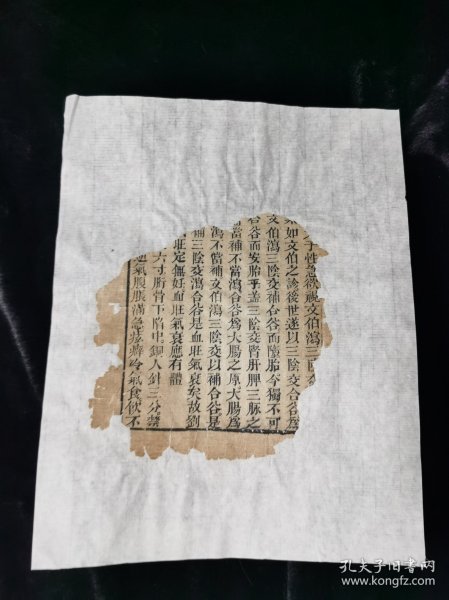 子性急欲視文伯瀉三陰交
果如文伯之診後世遂以三陰交合谷爲
文伯瀉三陰交補合谷而墮胎今獨不可
合谷而安胎乎盖三陰交腎肝脾三脉之
當補不當瀉合谷爲大腸之原大腸爲
瀉不當補文伯瀉三陰交以補合谷是
補三陰交瀉合谷是血旺氣衰矣故劉
旺定無妊血旺氣衰應有體
六寸胻骨下陷中銅人針三分禁
逆氣腹脹滿急痃癖冷氣食飲不
孔夫子旧书网
www.kongfz.com